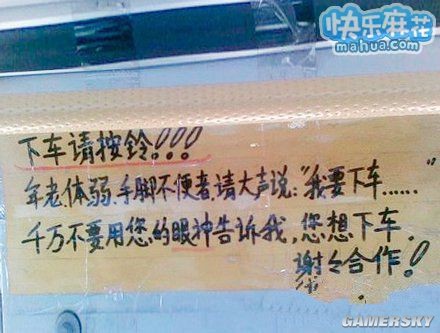 快乐麻花
mahua.com
下车请按铃!!!
年老体弱、手脚不便者,请大声说:“我要下车……”
千万不要用您的眼神告诉我,您想下车.
谢谢合作!
GAMERSKY